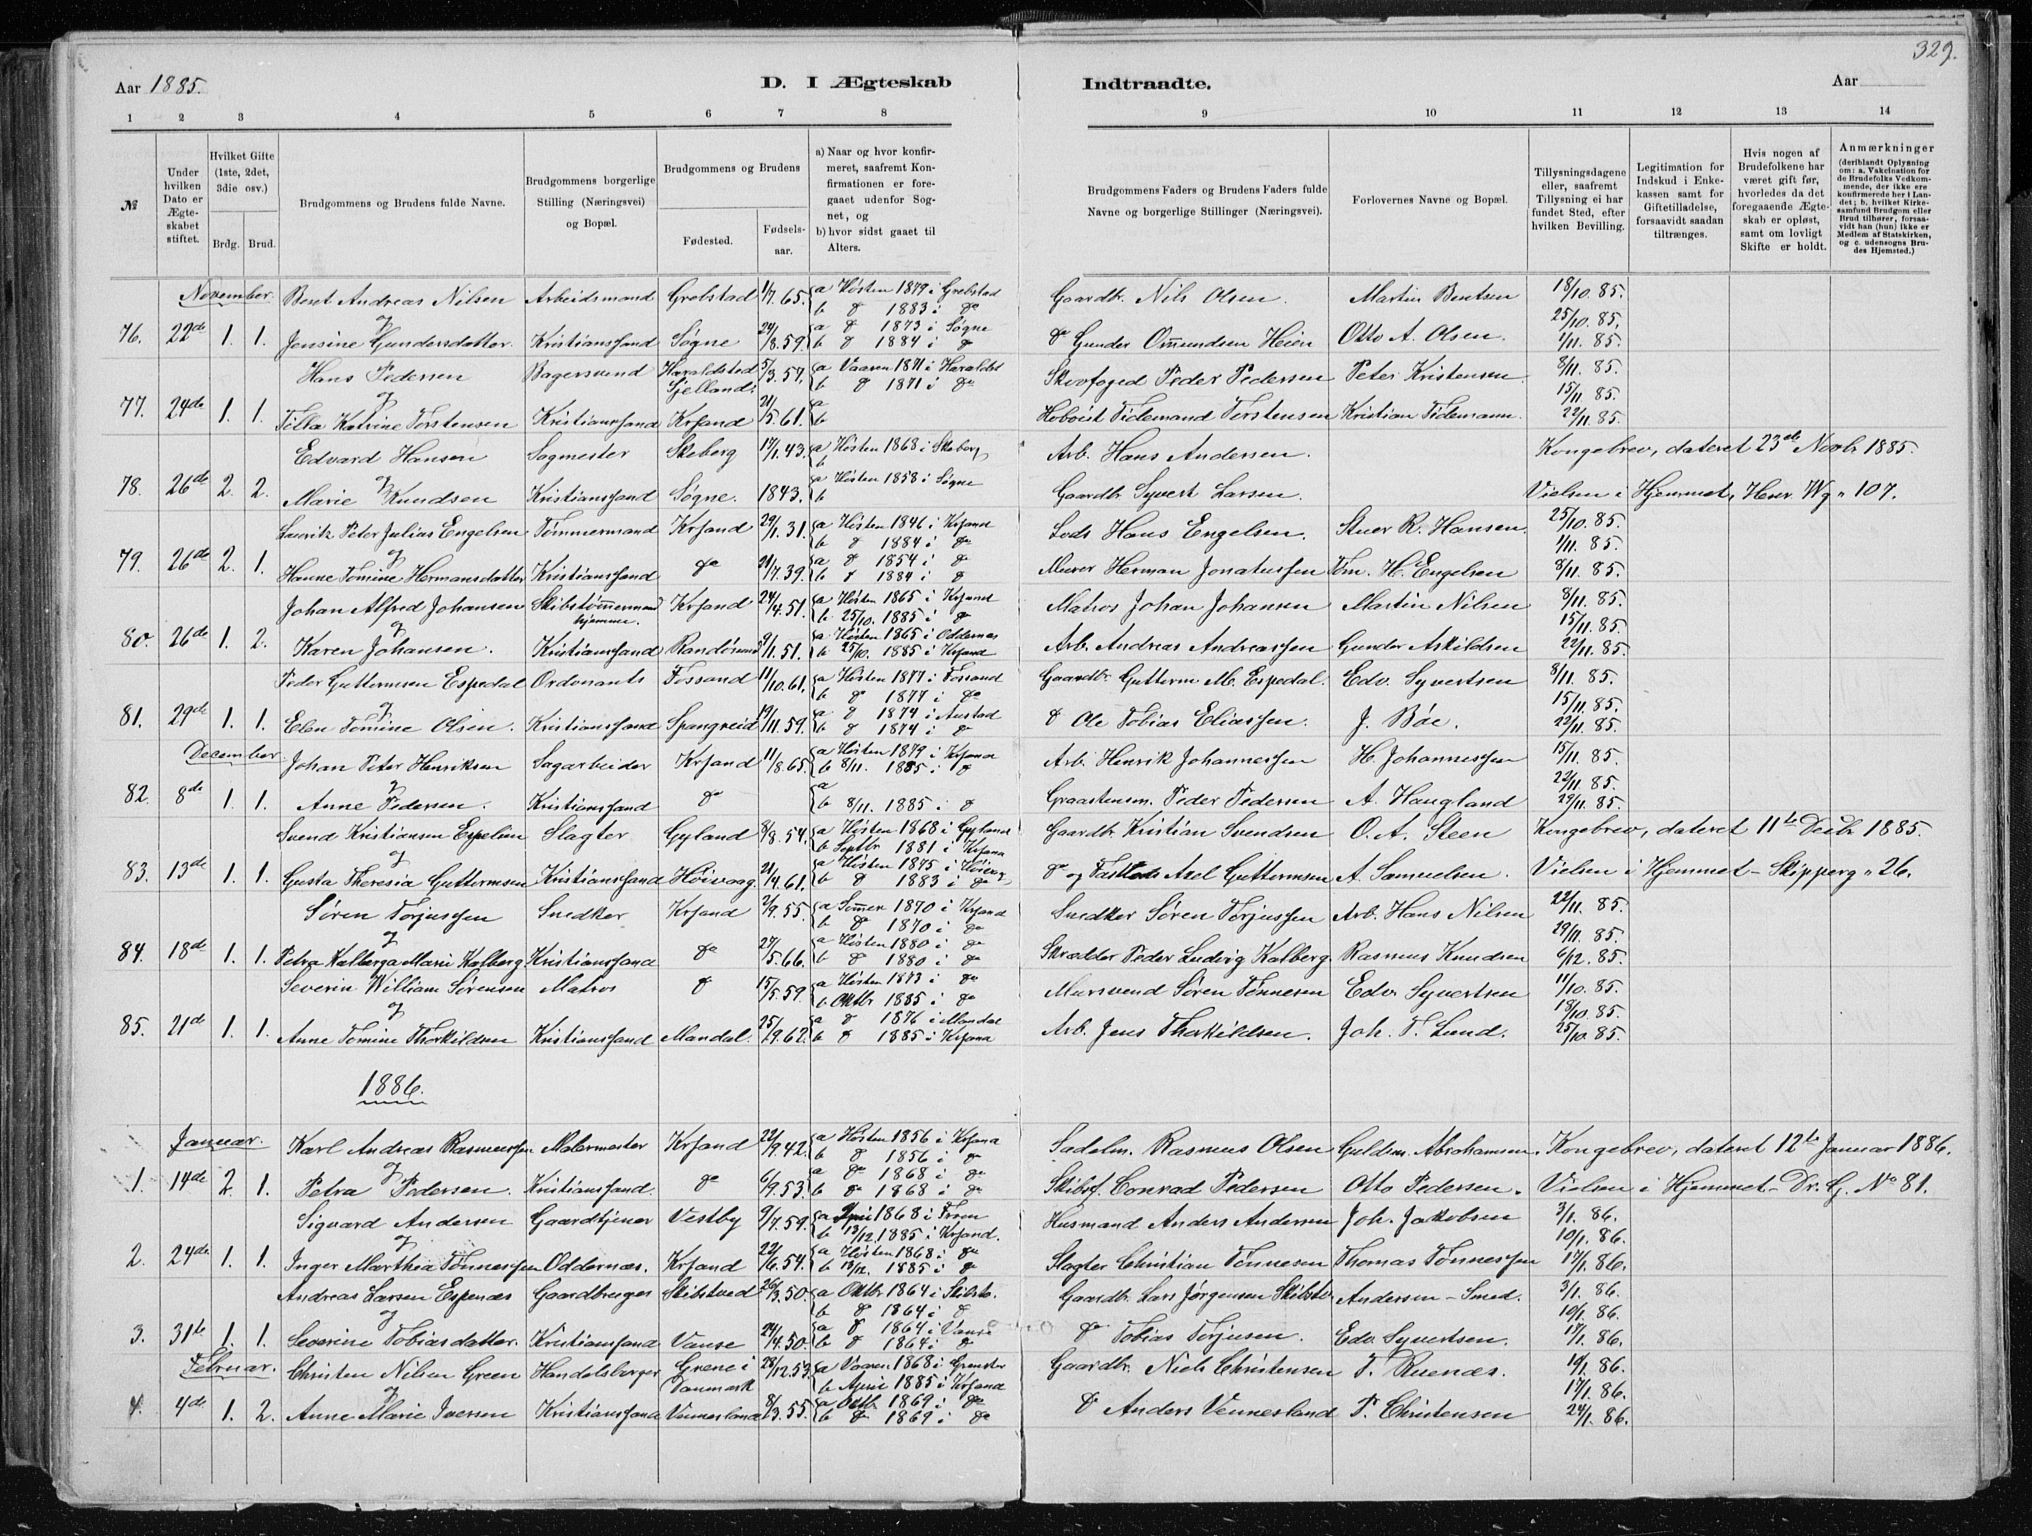 329.
Aar 1885.
D. I Ægteskab Indtraadte.
Aar
1 2 3 4 5 6 7 8 9 10 11 12 13 14
№
Under hvilken Dato er Ægteskabet stiftet.
Hvilket Gifte (1ste, 2det, 3die osv.)
Brdg. Brud.
Brudgommens og Brudens fulde Navne.
Brudgommens borgerlige Stilling (Næringsvei) og Bopæl.
Brudgommens og Brudens
Fødested. Fødselsaar.
a) Naar og hvor konfirmeret, saafremt Konfirmationen er foregaaet udenfor Sognet, og
b) hvor sidst gaaet til Alters.
Brudgommens Faders og Brudens Faders fulde Navne og borgerlige Stillinger (Næringsvei).
Forlovernes Navne og Bopæl.
Tillysningsdagene eller, saafremt Tillysning ei har fundet Sted, efter hvilken Bevilling.
Legitimation for Indskud i Enkekassen samt for Giftetilladelse, forsaavidt saadan tiltrænges.
Hvis nogen af Brudefolkene har været gift før, hvorledes da det foregaaende Ægteskab er opløst, samt om lovligt Skifte er holdt.
Anmærkninger
(deriblandt Oplysning om: a. Vakcination for de Brudefolks Vedkommende, der ikke ere konfirmerede her i Landet; b. hvilket Kirkesamfund Brudgom eller Brud tilhører, forsaavidt han (hun) ikke er Medlem af Statskirken, og c. udensogns Brudes Hjemsted.)
November. Bent Andreas Nilsen Arbeidsmand Grebstad 1/7.65. a Høsten 1879 i Grebstad Gaardbr. Nils Olsen. Martin Bentsen 18/10.85.
og b d 1883 i do 25/10.85.
76. 22de 1. 1. Jensine Gundersdatter. Kristianssand Søgne 24/8.59. a d 1873 i Søgne b d 1884 i d do Gunder Omundsen Heien Otto A. Olsen. 1/11.85.
Hans Pedersen Bagersvend Haraldsted Sjelland. 5/3.57. a Vaaren 1871 i Haraldst b d 1871 i do Skovfoged Peder Pedersen Peter Kristensen. 8/11.85.
og 15/11.85.
77. 24de 1. 1. Tilla Katrine Torstensen Kristianssand Krsand 21/5.61. a b Hoboist Tidemand Torstensen Kristian Tidemann. 22/11.85.
Edvard Hansen Sagmester Skeberg 17/1.43. a Høsten 1868 i Skeberg b Arb. Hans Andersen. Kongebrev, dateret 23de Novbr 1885.
og
78. 26de 2. 2. Marie Knudsen Kristianssand Søgne. 1843. a Høsten 1858 i Søgne b Gaardbr Syvert Larsen. Vielsen i Hjemmet,
Lauritz Peter Julius Engelsen Tømmermand Krsand 29/1.31 a Høsten 1846 i Krsand b d 1884 i do Lods Hans Engelsen. Stuer R. Hansen. 25/10.85.
og 1/11.85.
79. 26de 2. 1. Hanne Tomine Hermansdatter Kristianssand do 21/7.39. a d 1854 i d b d 1884 i d Murer Herman Jonatussen Tøm. H. Engelsen 8/11.85.
Johan Alfred Johansen Skibstømmermand hjemme. Krsand 24/4.51. a Høsten 1865 i Krsand b 25/10. 1885 i d Matros Johan Johansen Martin Nilsen 8/11.85.
og 15/11.85.
80. 26de 1. 2. Karen Johansen. Kristianssand Randøsund 9/11.51. a Høsten 1865 i Oddernæs b 25/10. 1885 i Krsand Arb. Andreas Andreassen Gunder Askildsen 22/11.85.
Peder Guttormsen Espedal Ordonants Fossand 11/10.61. a Høsten 1877 i Fossand b d 1877 i do Gaardbr Guttorm M. Espedal. Edv. Syvertsen 8/11.85.
og 15/11.85.
81. 29de 1. 1. Elen Tomine Olsen. Kristianssand Spangreid 19/11.59. a d 1874 i Austad b d 1874 i do d Ole Tobias Eliassen. J. Bøe. 22/11.85.
December. Johan Peter Henriksen Sagarbeider Krsand 11/8.65. a Høsten 1879 i Krsand b 8/11. 1885 i d Arb. Henrik Johannessen H. Johannessen 15/11.85.
og 22/11.85.
82. 8de 1. 1. Anne Pedersen. Kristianssand do a b 8/11. 1885 i d Graastensm. Peder Pedersen A. Haugland 29/11.85.
Svend Kristiansen Espeline Slagter Gyland 8/8.54. a Høsten 1868 i Gyland b Septbr 1881 i Krsand Gaardbr Kristian Svendsen O. A. Steen Kongebrev, dateret 11te Decbr 1885.
og
83. 13de 1. 1. Gusta Theresia Guttormsen Kristianssand Høivaag. 21/4.61. a Høsten 1875 i Høivaag b d 1883 i do do Axel Guttormsen A. Samuelsen. Vielsen i Hjemmet - Skipperg " 26.
Søren Torjussen Snedker Krsand 2/9.55. a Sommer 1870 i Krsand b d 1870 i do Snedker Søren Torjussen Arb. Hans Nilsen 22/11.85.
og 29/11.85.
84. 18de 1. 1. Petra Kalberga Marie Kalberg Kristianssand do 27/5.66. a Høsten 1880 i do b d 1880 i do Skrædder Peder Ludvig Kalberg Rasmus Knudsen 6/12.85.
Severin William Sørensen Matros d 15/5.59. a Høsten 1873 i do b Oktbr 1885 i do Mursvend Søren Tønnesen Edv. Syvertsen 11/10.85.
og 18/10.85.
85. 21de 1. 1. Anne Tomine Thorkildsen Kristianssand Mandal. 25/9.62. a d 1876 i Mandal b d 1885 i Krsand Arb. Jens Thorkildsen. Joh. T. Lund. 25/10.85.
1886.
Januar. Karl Andreas Rasmussen Malermester Krsand 22/9.42. a Høsten 1856 i Krsand b d 1856 i do Sadelm. Rasmus Olsen Guldsm. Abrahamsen. Kongebrev, dateret 12te Januar 1886.
og
1. 14de 2. 1. Petra Pedersen. Kristianssand. do 6/9.53. a do 1868 i do b do 1868 i do Skibsf. Conrad Pedersen Otto Pedersen. Vielsen i Hjemmet - Dr. G. No 81.
Sigvard Andersen Gaardtjener Vestby 9/7.59. a April 1868 i b 13/12.1885 i Krsand. Husmand Anders Andersen Joh. Jakobsen 3/1.86.
og 10/1.86.
2. 24de 1. 1. Inger Marthea Tønnessen Oddernæs. Krsand 22/6.54. a Høsten 1868 i do b 13/12. 1885 i d Slagter Christian Tønnesen Thomas Tønnessen 17/1.86.
Andreas Larsen Espenæs Gaardbruger Skibstved 26/3.50. a Oktbr 1864 i Skibstv. b d 1864 i d Gaardbr. Lars Jørgensen Skibstv Andersen - Smed. 3/1.86.
og 10/1.86.
3. 31te 1. 1. Severine Tobiasdatter. Kristianssand Vanse 24/4.50. a d 1864 i Vanse b d 1864 i do do Tobias Torjusen. Edv. Syvertsen. 17/1.86.
Februar. Christen Nilsen Green Handelsborger Grene i Danmark 28/12.53. a Vaaren 1868 i b April 1885 i Krsand Gaardbr. Niels Christensen T. Ruenæs. 10/1.86.
og 17/1.86.
4. 4de 1. 2. Anne Marie Iversen Kristianssand Vennesland 8/3.55. a Octb. 1869 i do b do 1869 i do d Anders Vennesland P. Christensen 24/1.86.